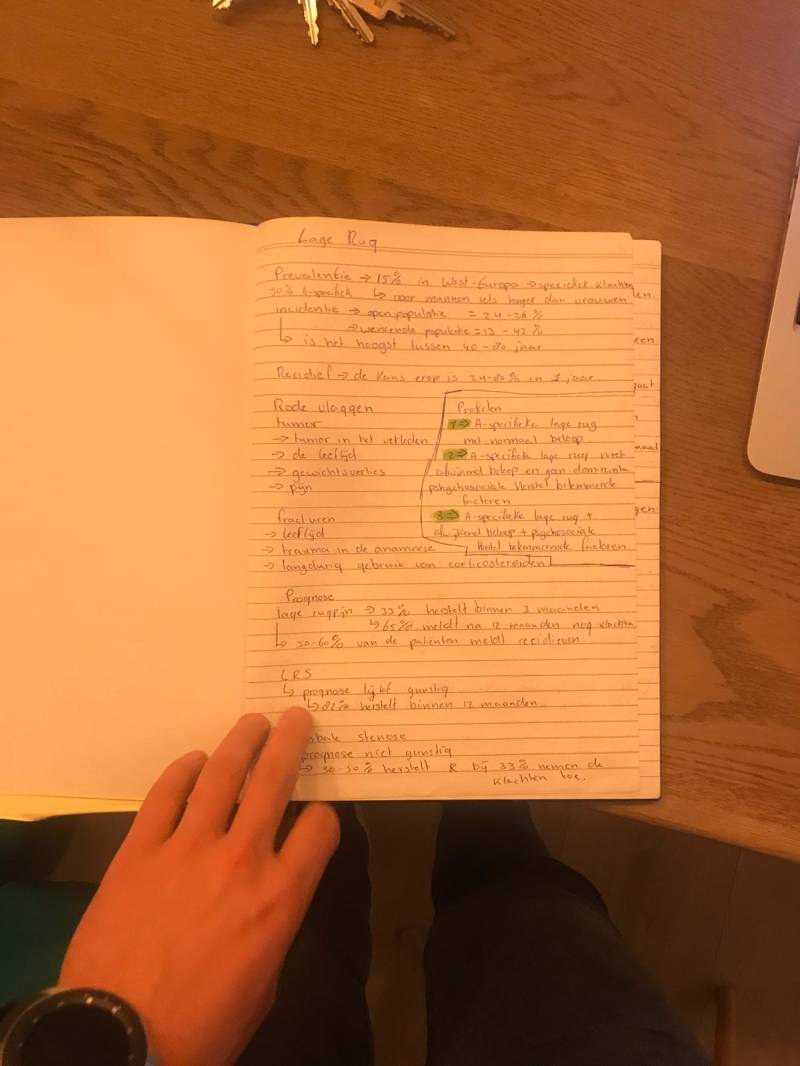 Lage Rug
Prevalentie → 15% in West-Europa → specifiek klachten
90% A-specifiek ↳ voor mannen iets hoger dan vrouwen
incidentie → open populatie = 24-36%
→ werkende populatie = 13-42%
↳ is het hoogst tussen 40-80 jaar
Recidief → de kans erop is 24-80% in 1 jaar
Rode vlaggen
tumor
→ tumor in het verleden
→ de leeftijd
→ gewichtsverlies
→ pijn
fracturen
→ leeftijd
→ trauma in de anamnese
→ langdurig gebruik van corticosteroiden
Profielen
1 ⇒ A-specifieke lage rug
met normaal beloop
2 ⇒ A-specifieke lage rug met
afwijkend beloop en geen dominante
pshychosociale Herstel belemmerende
factoren
3 ⇒ A-specifieke lage rug +
afwijkend beloop + psychosociale
Herstel belemmerende factoren
Prognose
lage rugpijn → 33% herstelt binnen 3 maanden
↳ 65% meldt na 12 maanden nog klachten
↳ 50-60% van de patienten meldt recidieven
LRS
↳ prognose lijkt gunstig
↳ 82% herstelt binnen 12 maanden
stenose
prognose niet gunstig
→ 30-50% herstelt & bij 33% nemen de
klachten toe.